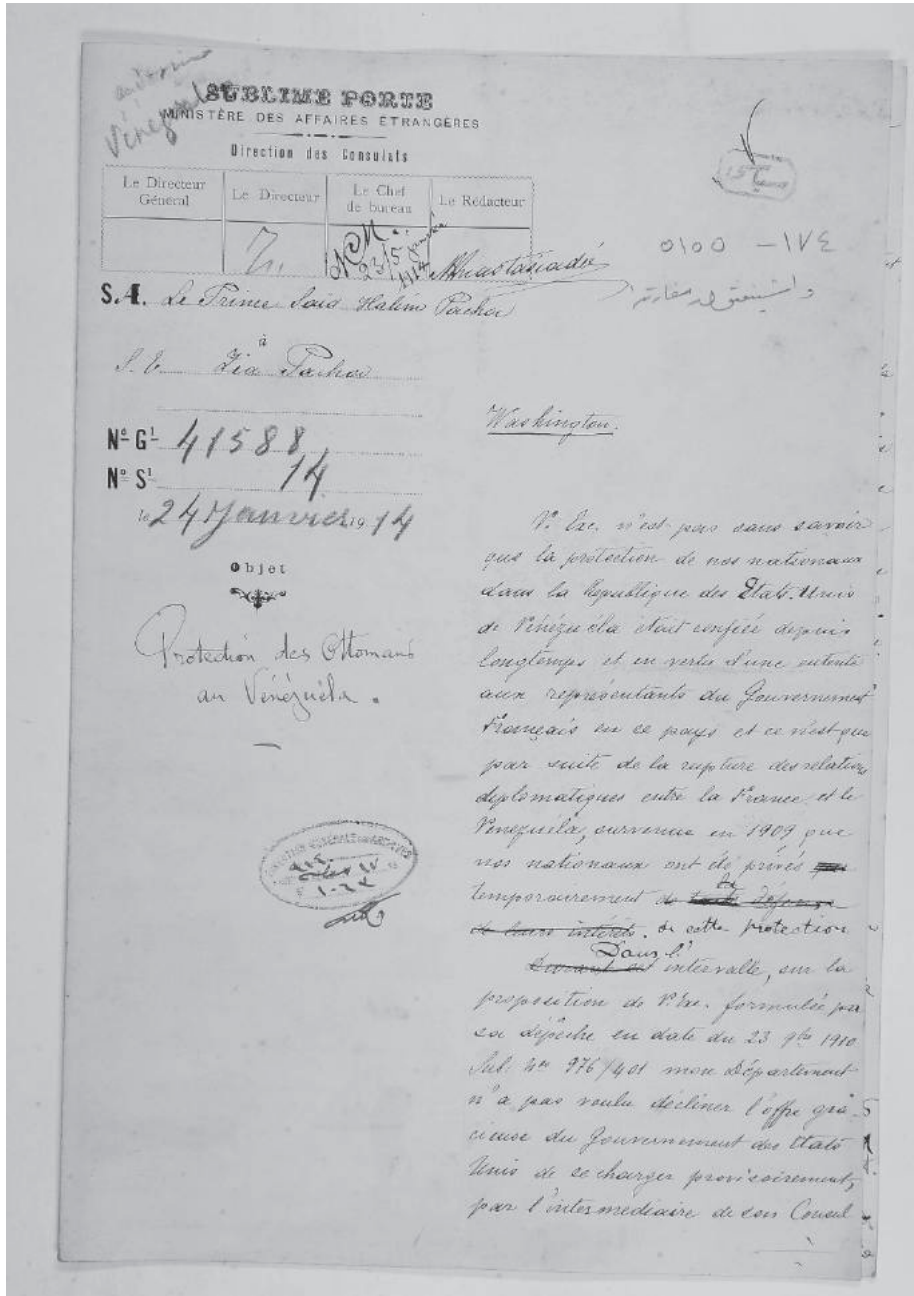 au dossier
Vénézuéla
SUBLIME PORTE
MINISTÈRE DES AFFAIRES ÉTRANGÈRES
Direction des Consulats
Le Directeur Général
Le Directeur
Le Chef de bureau
Le Rédacteur
23/5 janvier
1914
Anastassiadi
٠١٥٥ - ١٧٤
S.A. Le Prince Saïd Halim Pacha
à
S. E. Zia Pacha
Washington.
Nº Gˡ 41588
Nº Sˡ 14
le 24 Janvier 1914
Objet
Protection des Ottomans
au Vénézuéla.
V. Exc. n'est pas sans savoir
que la protection de nos nationaux
dans la République des Etats-Unis
de Vénézuéla était confiée depuis
longtemps et en vertu d'une entente
aux représentants du Gouvernement
Français en ce pays et ce n'est que
par suite de la rupture des relations
diplomatiques entre la France et le
Venezuéla, survenue en 1909, que
nos nationaux ont été privés
temporairement de toute défense
de leurs intérêts. de cette protection
Dans l'
Durant cet intervalle, sur la
proposition de V. Exc. formulée par
sa dépêche en date du 23 9bre 1910
Sub. Nos 976/401 mon Département
n'a pas voulu décliner l'offre gra-
cieuse du Gouvernement des Etats
Unis de se charger provisoirement,
par l'intermédiaire de son Consul